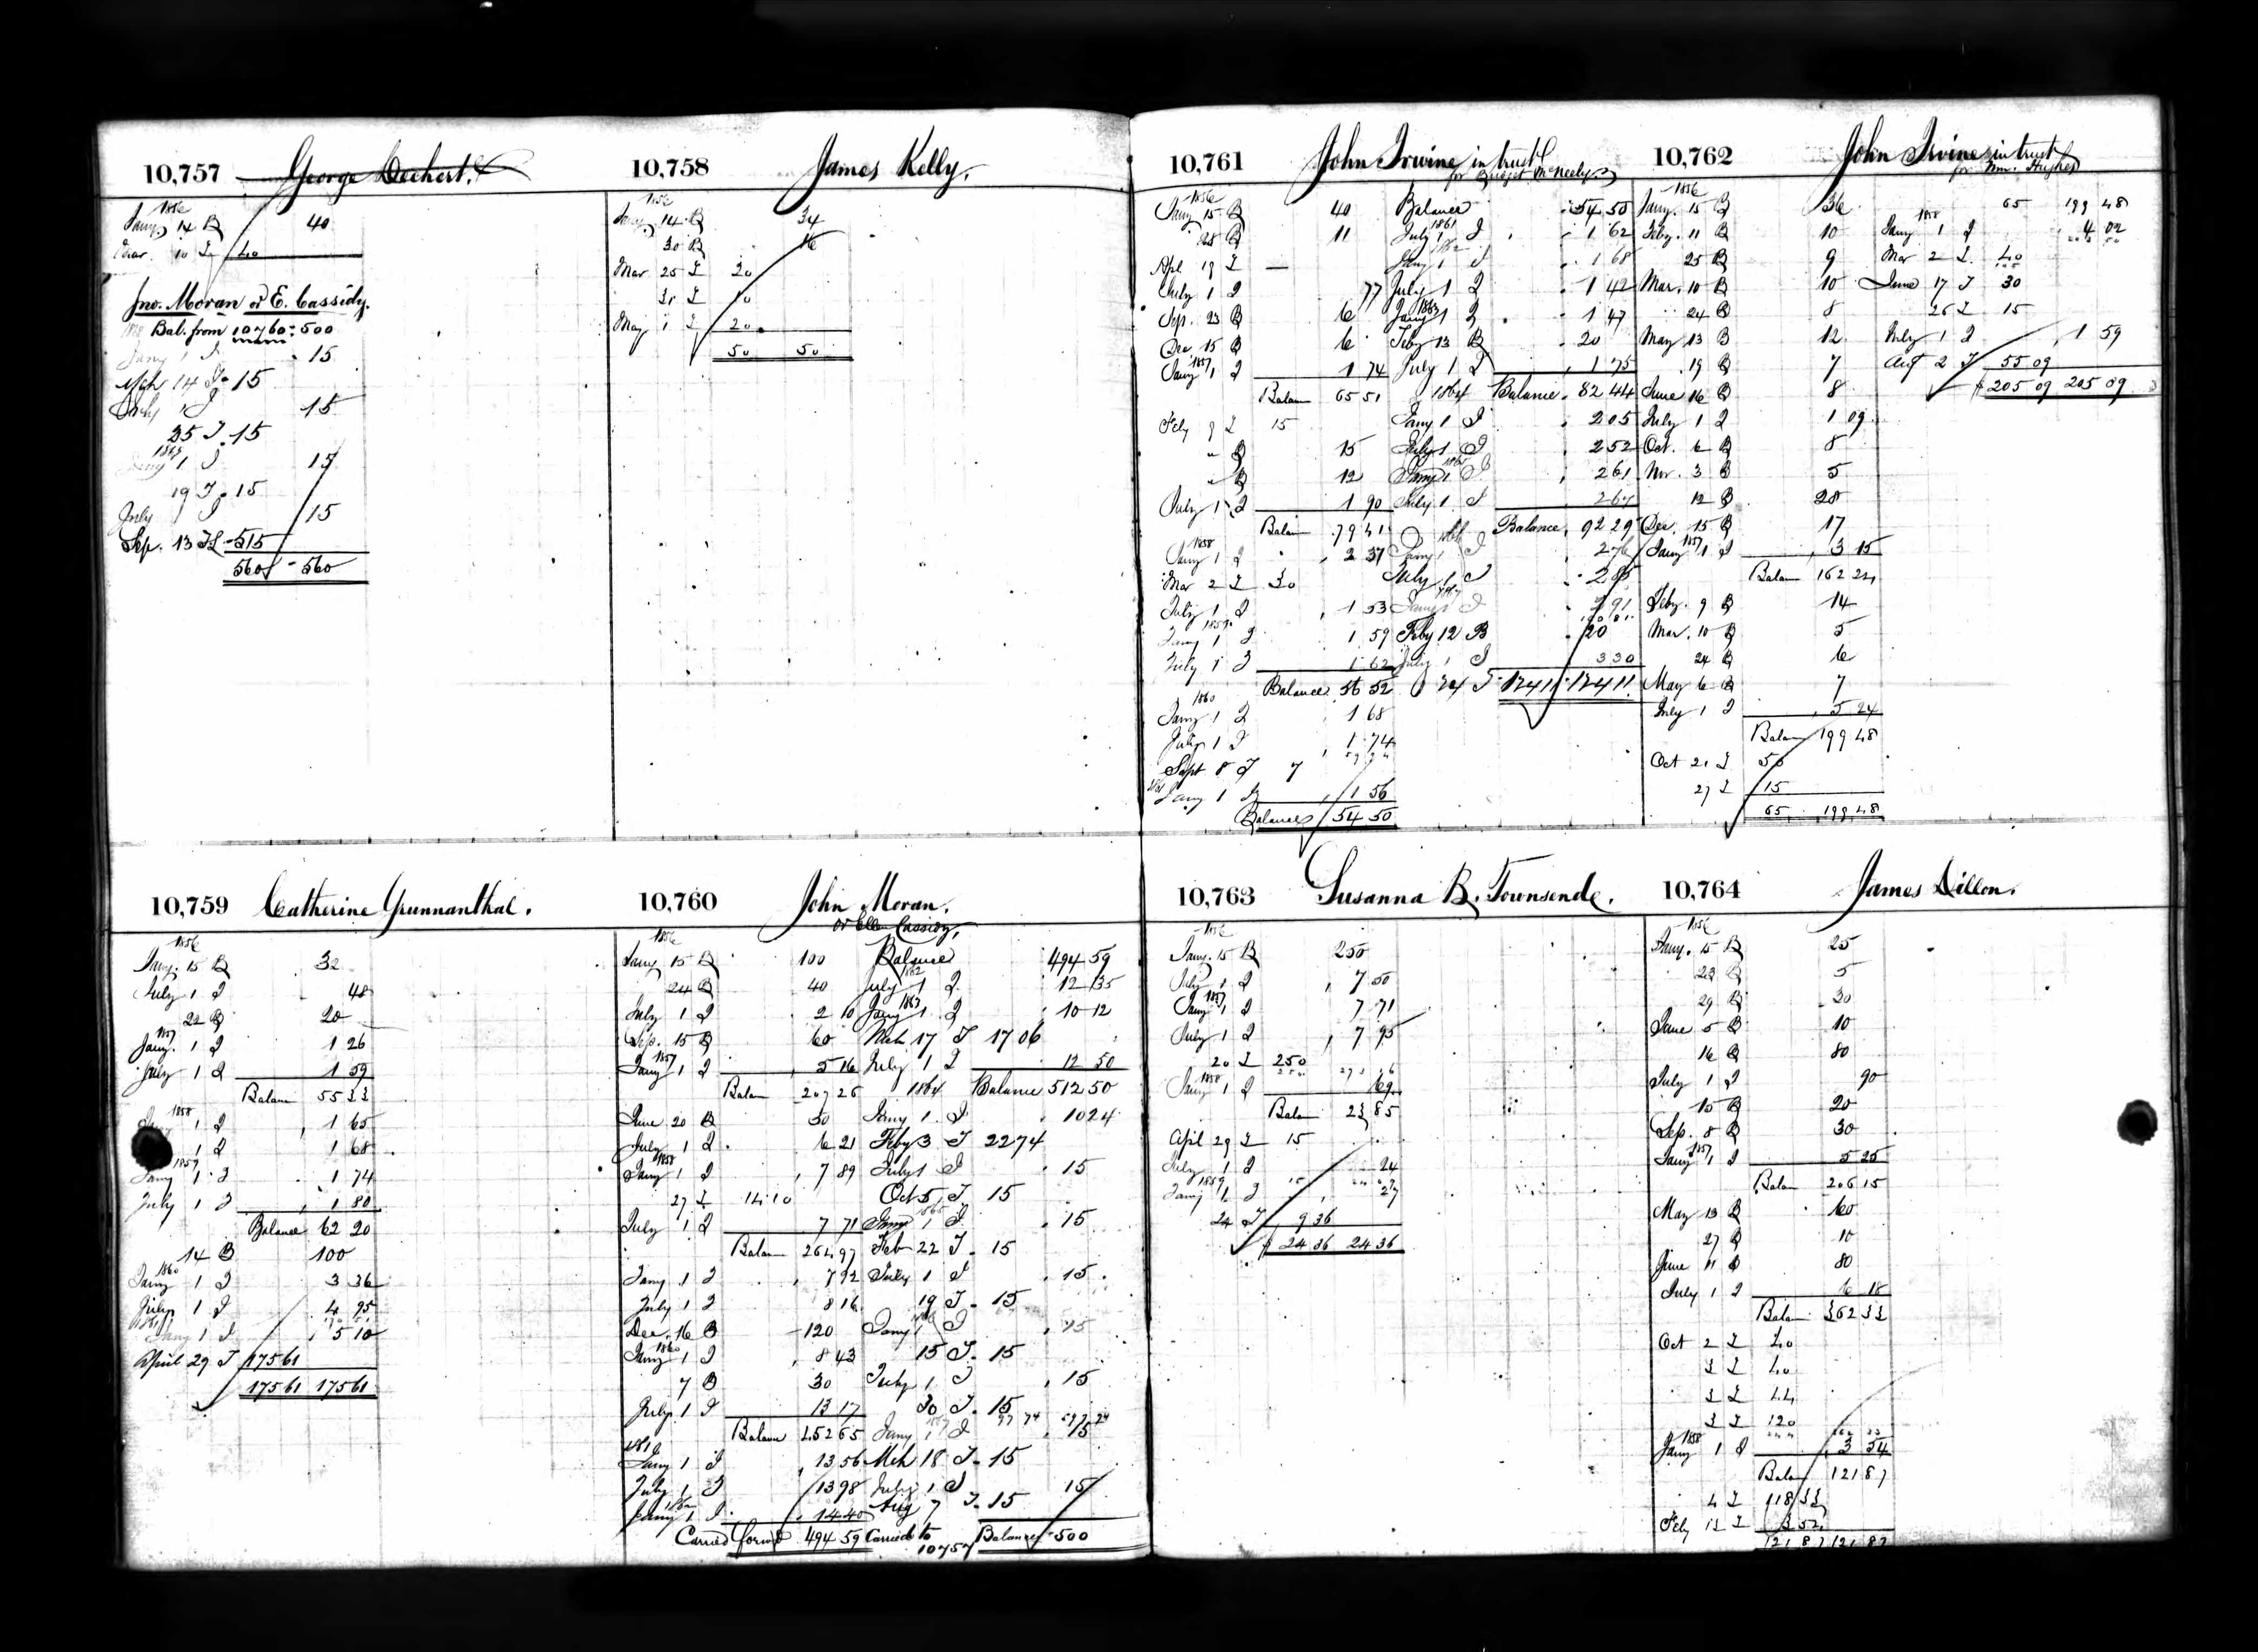 10,757 George Dechert.
1856
Jany 14 B 40
Mar. 10 T 40
Jno. Moran or E. Cassidy.
Bal. from 10760 = 500
Jany 1 I 15
Mch 14 T 15
July 1 I 15
25 T 15
Jany 1 I 15
19 T 15
July 1 I 15
Sep. 13 T 515
560 560
10,758 James Kelly.
1856
Jany 14 B 34
30 B 16
Mar 25 T 20
31 T 10
May 1 T 20
50 50
10,759 Catherine Grunnanthal.
1856
Jany. 15 B 32
July 1 I 48
22 B 20
1857
Jany. 1 I 1 26
July 1 I 1 59
Balan 55 33
1858
Jany 1 I 1 65
1 I 1 68
1859
Jany 1 I 1 74
July 1 I 1 80
Balance 62 20
14 B 100
1860
Jany 1 I 3 36
July 1 I 4 95
1861
Jany 1 I 5 10
April 29 T 175 61
175 61 175 61
10,760 John Moran.
or Ellen Cassidy.
1856
Jany 15 B 100
24 B 40
July 1 I 2 10
Sep. 15 B 60
1857
Jany 1 I 5 16
Balan 207 26
June 20 B 30
July 1 I 6 21
1858
Jany 1 I 7 89
27 T 14 10
July 1 I 7 71
Balan 264 97
Jany 1 I 7 92
July 1 I 8 16
Dec. 16 B 120
1860
Jany 1 I 8 43
7 B 30
July 1 I 13 17
Balance 452 65
1861
Jany 1 I 13 56
July 1 I 13 98
1862
Jany 1 I 14 40
Carried forwd 494 59
Balance 494 59
1862
July 1 I 12 35
1863
Jany 1 I 10 12
Mch 17 T 17 06
July 1 I 12 50
1864 Balance 512 50
Jany 1 I 10 24
Feby 3 T 22 74
July 1 I 15
Oct 5 T 15
1865
Jany 1 I 15
Feb 22 T 15
July 1 I 15
19 T 15
Jany 1 I 15
15 T 15
July 1 I 15
30 T 15
1867
Jany 1 I 15
Mch 18 T 15
July 1 I 15
Aug 7 T 15
Carried to 10757 Balance 500
10,761 John Irvine in trust
for Bridget McNeely
1856
Jany 15 B 40
28 B 11
Apl 19 T
July 1 I 77
Sep. 23 B 6
Dec 15 B 6
1857
Jany 1 I 1 74
Balan 65 51
Feby 9 T 15
" B 15
" B 12
July 1 I 1 90
Balan 79 41
1858
Jany 1 I 2 37
Mar 2 T 30
July 1 I 1 53
1859
Jany 1 I 1 59
July 1 I 1 62
Balance 56 52
1860
Jany 1 I 1 68
July 1 I 1 74
Sept 8 T 7
1861
Jany 1 I 1 56
Balance 54 50
Balance 54 50
1861
July 1 I 1 62
1862
Jany 1 I 1 68
July 1 I 1 42
1863
Jany 1 I 1 47
Feby 13 B 20
July 1 I 1 75
1864 Balance 82 44
Jany 1 I 2 05
July 1 I 2 52
1865
Jany 1 I 2 61
July 1 I 2 67
Balance 92 29
1866
Jany 1 I 2 76
July 1 I 2 85
1867
Jany 1 I 2 91
Feby 12 B 20
July 1 I 3 30
24 T 124 11 124 11
10,762 John Irvine in trust
for Wm. Hughes
1856
Jany. 15 B 36
Feby. 11 B 10
25 B 9
Mar. 10 B 10
24 B 8
May 13 B 12
19 B 7
June 16 B 8
July 1 I 1 09
Oct. 6 B 8
Nov. 3 B 5
12 B 28
Dec. 15 B 17
1857
Jany 1 I 3 15
Balan 162 24
Feby. 9 B 14
Mar. 10 B 5
24 B 6
May 6 B 7
July 1 I 5 24
Balan 199 48
Oct 21 T 50
27 T 15
65 199 48
65 199 48
1858
Jany 1 I 4 02
Mar 2 T 40
June 17 T 30
26 T 15
July 1 I 1 59
Aug 2 T 55 09
$ 205 09 205 09
10,763 Susanna B. Townsende.
1856
Jany. 15 B 250
July 1 I 7 50
1857
Jany 1 I 7 71
July 1 I 7 95
20 T 250
1858
Jany 1 I 69
Balan 23 85
April 29 T 15
July 1 I 24
1859
Jany 1 I 27
24 T 9 36
$ 24 36 24 36
10,764 James Dillon.
1856
Jany. 15 B 25
22 B 5
29 B 30
June 5 B 10
16 B 80
July 1 I 90
15 B 20
Sep. 8 B 30
1857
Jany 1 I 5 25
Balan 206 15
May 13 B 60
27 B 10
June 11 B 80
July 1 I 6 18
Balan 362 33
Oct 2 T 40
3 T 40
3 T 44
3 T 120
1858
Jany 1 I 3 54
Balan 121 87
4 T 118 33
Feby 13 T 3 54
121 87 121 87